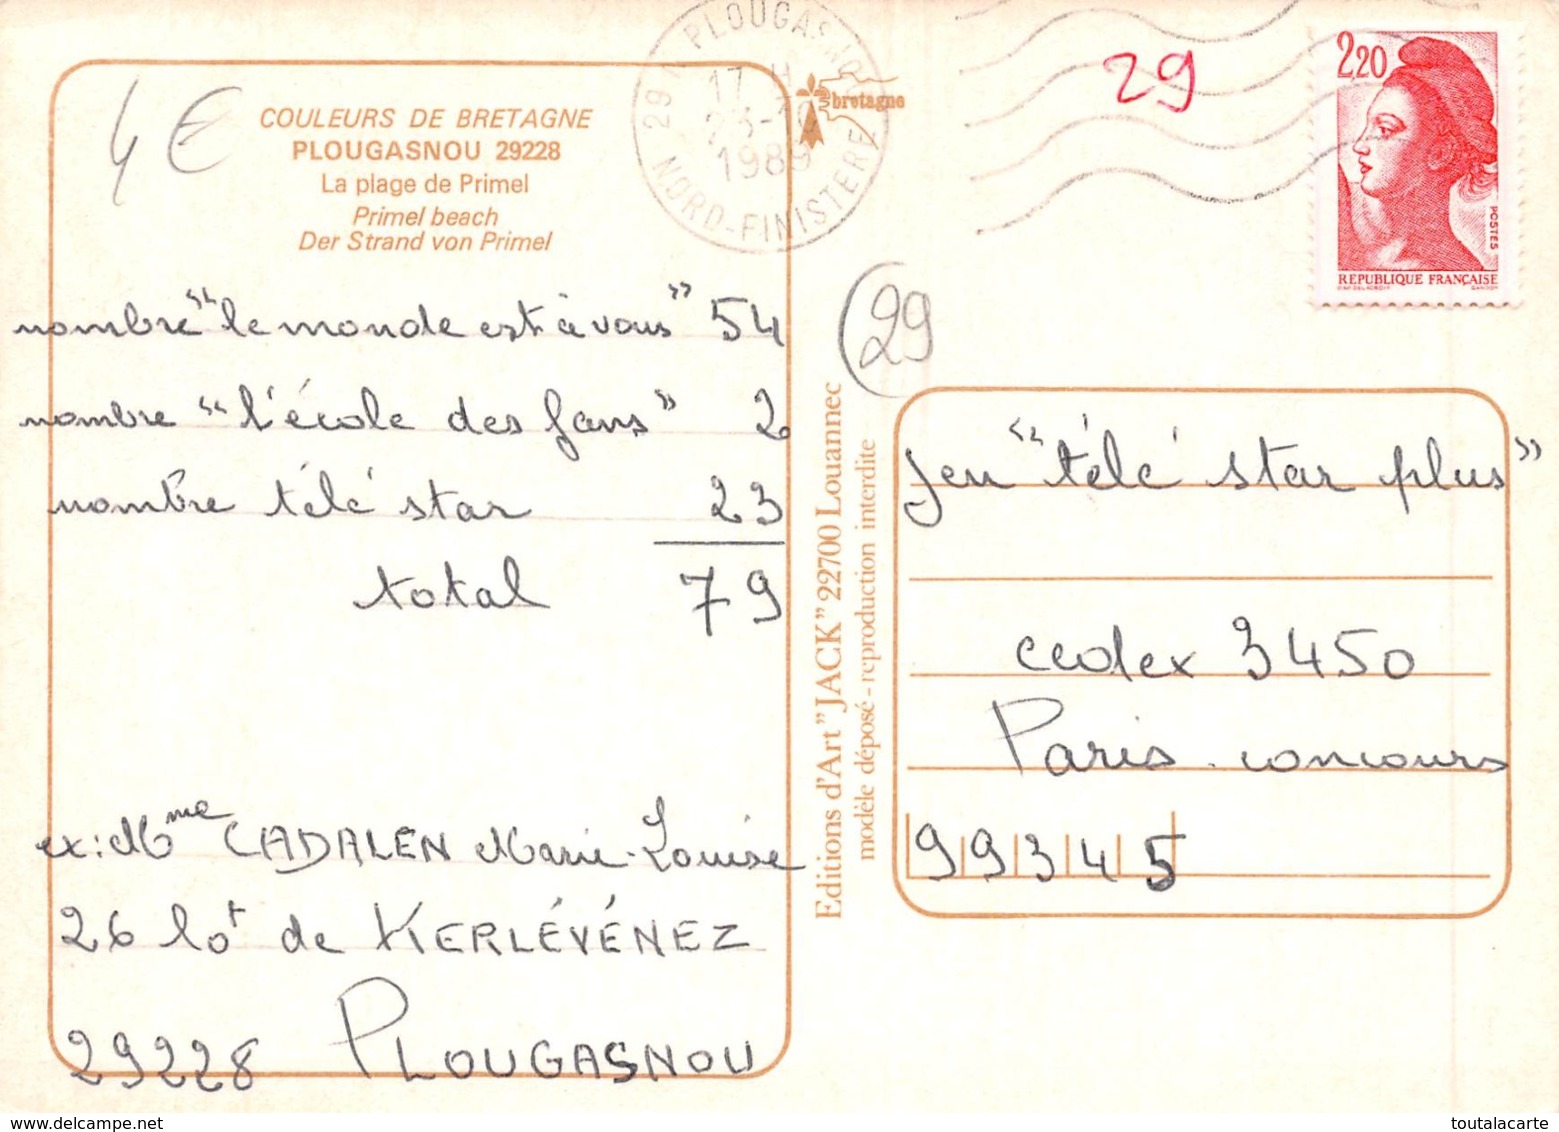 4€
COULEURS DE BRETAGNE
PLOUGASNOU 29228
La plage de Primel
Primel beach
Der Strand von Primel
29 PLOUGASNOU
17 H
1989
NORD-FINISTERE
bretagne
29
2,20
POSTES
REPUBLIQUE FRANÇAISE
(29
nombre "le monde est à vous" 54
nombre "l'école des fans" 2
nombre télé star 23
total 79
ex: Mme CADALEN Marie-Louise
26 lot de KERLÉVÉNEZ
29228 PLOUGASNOU
Editions d'Art "JACK" 22700 Louannec
modèle déposé - reproduction interdite
jeu "télé star plus"
cedex 3450
Paris.concours
99345
delcampe.net
toutalacarte